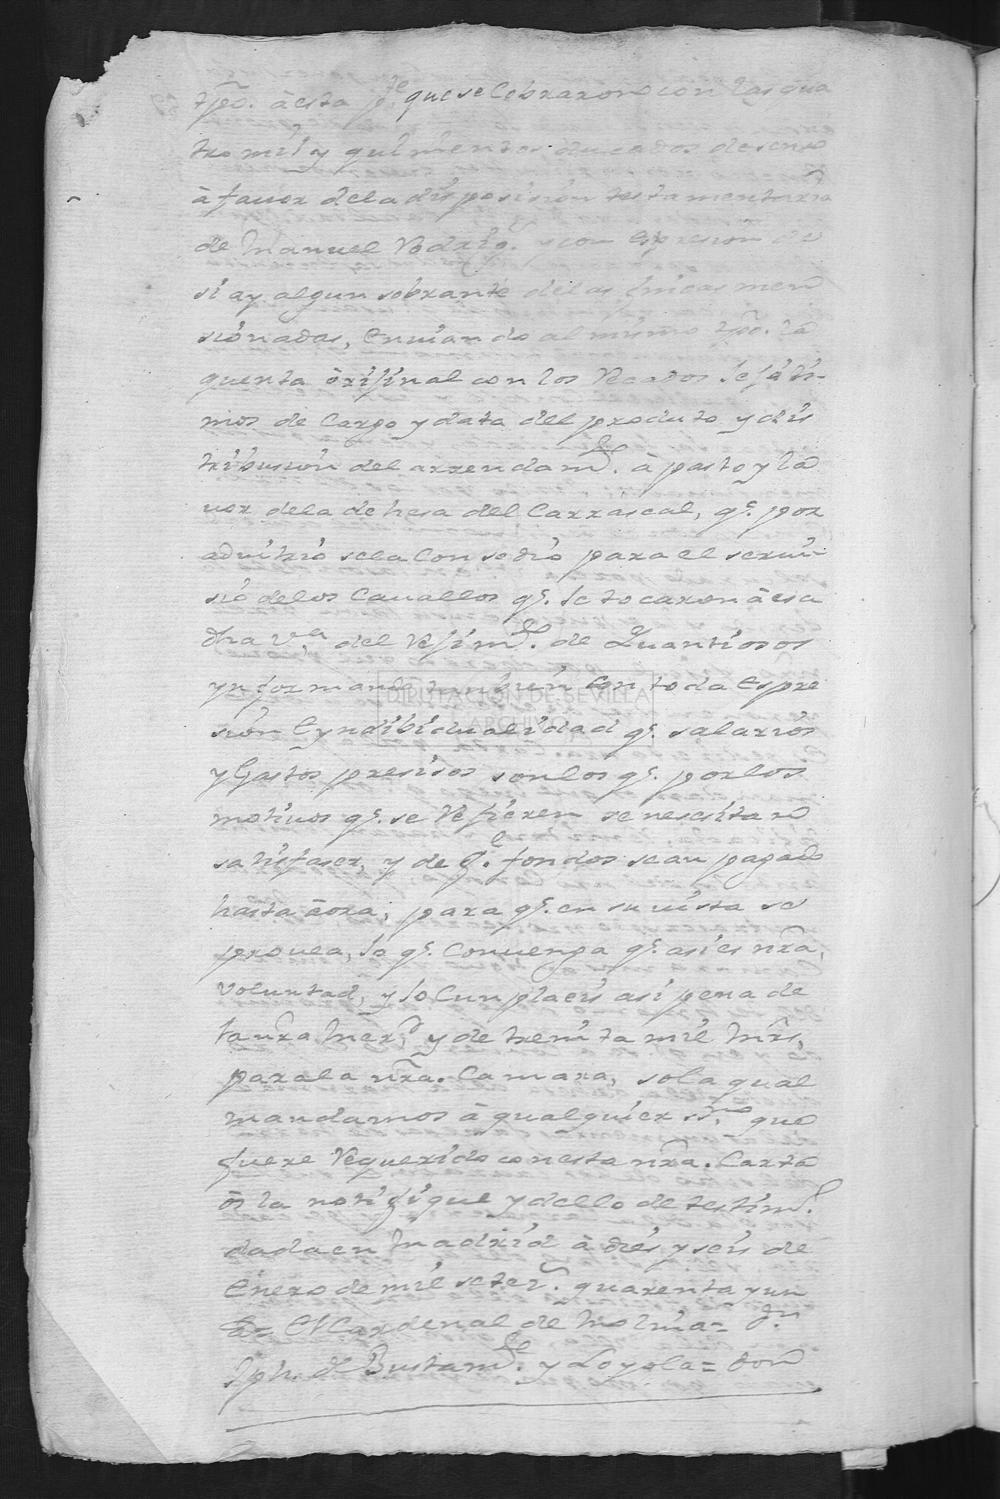 tpô. à esta p.te que se Cobraron con las qua
tro mil y quinientos ducados de senso
à favor de la disposision testamentaria
de Manuel Rodrig.z y con Espresion de
si ay algun sobrante de las fincas men
sionadas, Enviando al mismo tpô. la
quenta òrijinal con los Recados Lejiti-
mos de Cargo y data del produto y dis
tribusion del arrendam.to à pasto y la
vor de la dehesa del Carrascal, q.e por
advitrio se la Consedio para el servi-
sio de los Cavallos q.e le tocaron à esa
dha v.a del Rejim.to de Quantiosos
ynformando tambien con toda Espre
sion E yndibidualidad q.e salarios
y Gastos presisos son los q.e por los
motivos q.e se Refieren se nesesitan
satisfaser, y de q.e fondos se an pagado
hasta àora, para q.e en su vista se
provea, lo q.e Convenga q.e asi es nrâ.
voluntad, y lo Cunplaeis asi pena de
la nrâ Merd. y de treinta mil mrs̃,
para la nrâ. Camara, so la qual
mandamos à qualquier ss.no que
fuere Requerido con esta nrâ. Carta
òs la notifique y de ello de testim.o
dada en Madrid à dies y seis de
Enero de mil setes.s quarenta y un
El Cardenal de Molina = dn.
Jph. de Bustam.te y Loyola = don
DIPUTACIÓN DE SEVILLA
ARCHIVO